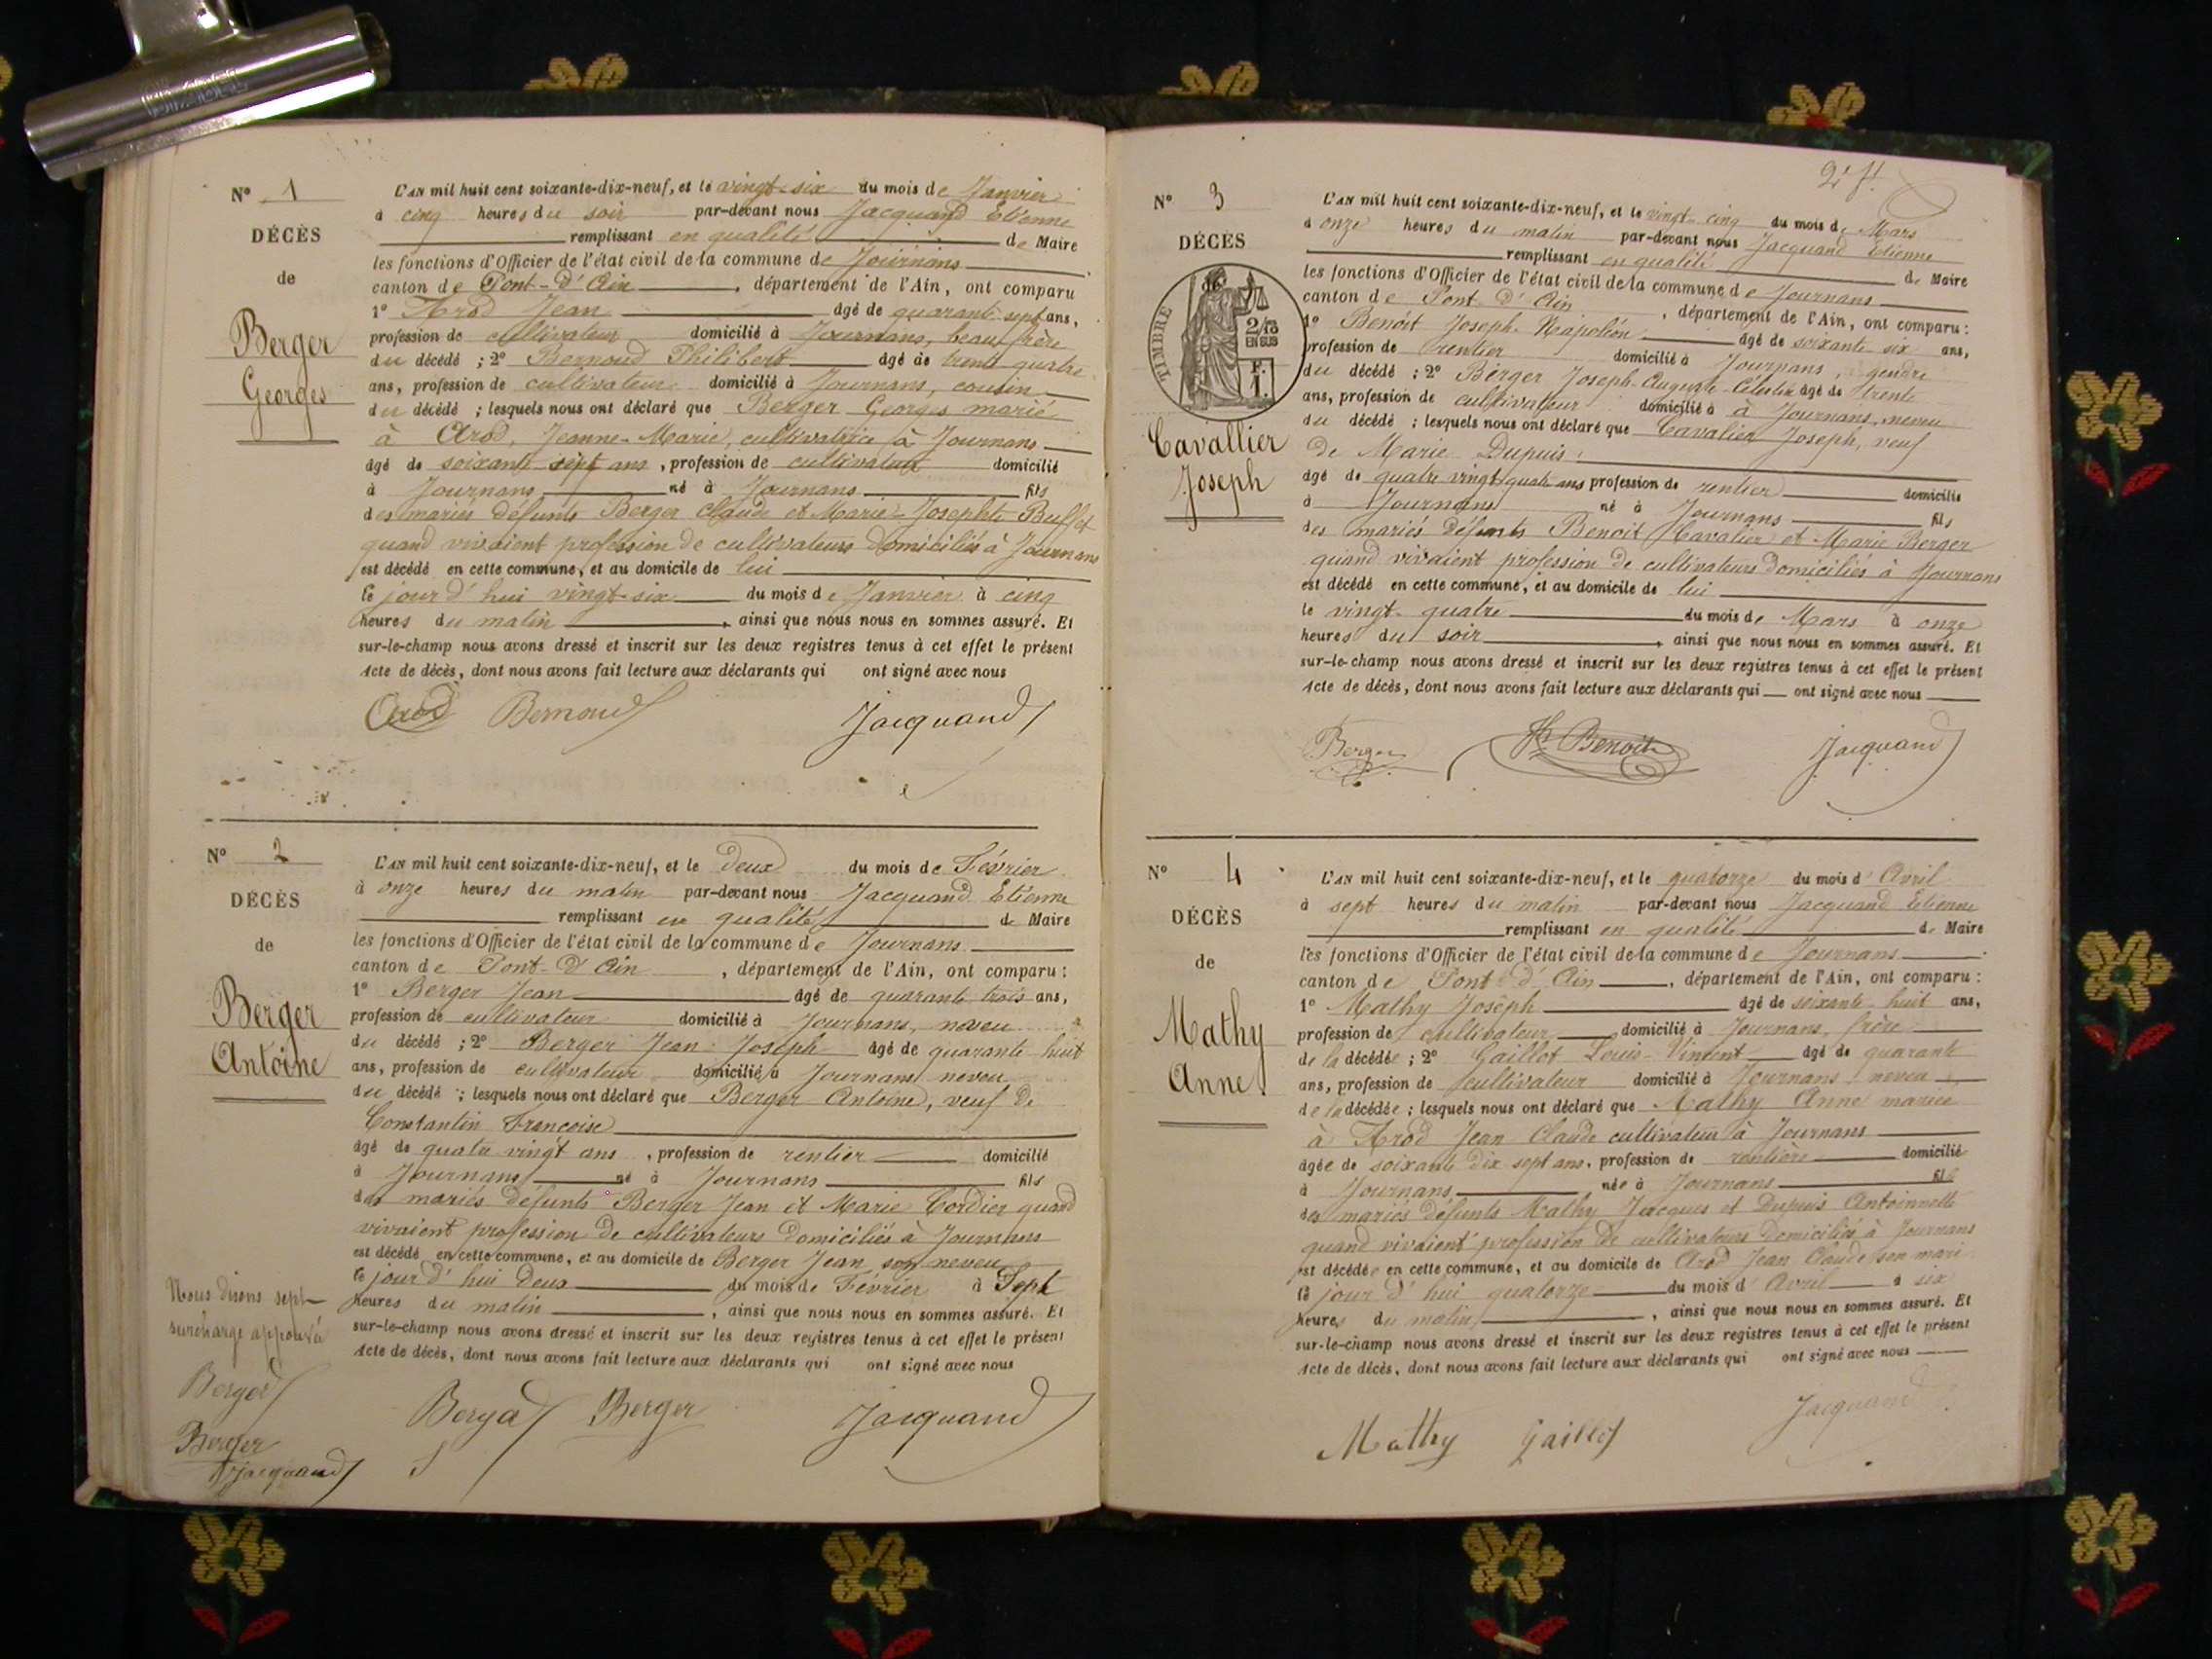 N° 1
DÉCÈS
de
Berger
Georges
L'AN mil huit cent soixante-dix-neuf, et le vingt-six du mois de Janvier
à cinq heures du soir par-devant nous Jacquand Etienne
remplissant en qualité de Maire
les fonctions d'Officier de l'état civil de la commune de Journans
canton de Pont-d'Ain, département de l'Ain, ont comparu
1° Arod Jean âgé de quarante sept ans,
profession de cultivateur domicilié à Journans, beau frère
du décédé ; 2° Bernoud Philibert âgé de trente quatre
ans, profession de cultivateur domicilié à Journans, cousin
du décédé ; lesquels nous ont déclaré que Berger Georges marié
à Arod, Jeanne-Marie, cultivatrice à Journans
âgé de soixante sept ans, profession de cultivateur domicilié
à Journans né à Journans fils
des mariés défunts Berger Claude et Marie-Josephte Buffet
quand vivaient profession de cultivateurs domiciliés à Journans
est décédé en cette commune, et au domicile de lui
le jour d'hui vingt-six du mois de Janvier à cinq
heures du matin, ainsi que nous nous en sommes assuré. Et
sur-le-champ nous avons dressé et inscrit sur les deux registres tenus à cet effet le présent
Acte de décès, dont nous avons fait lecture aux déclarants qui ont signé avec nous
Arod Bernoud Jacquand
N° 2
DÉCÈS
de
Berger
Antoine
L'AN mil huit cent soixante-dix-neuf, et le deux du mois de Février
à onze heures du matin par-devant nous Jacquand Etienne
remplissant en qualité de Maire
les fonctions d'Officier de l'état civil de la commune de Journans
canton de Pont-d'Ain, département de l'Ain, ont comparu :
1° Berger Jean âgé de quarante trois ans,
profession de cultivateur domicilié à Journans, neveu
du décédé ; 2° Berger Jean Joseph âgé de quarante huit
ans, profession de cultivateur domicilié à Journans neveu
du décédé ; lesquels nous ont déclaré que Berger Antoine, veuf de
Constantin Françoise
âgé de quatre vingt ans, profession de rentier domicilié
à Journans né à Journans fils
des mariés défunts Berger Jean et Marie Cordier quand
vivaient profession de cultivateurs domiciliés à Journans
est décédé en cette commune, et au domicile de Berger Jean son neveu
le jour d'hui deux du mois de Février à Sept
heures du matin, ainsi que nous nous en sommes assuré. Et
sur-le-champ nous avons dressé et inscrit sur les deux registres tenus à cet effet le présent
Acte de décès, dont nous avons fait lecture aux déclarants qui ont signé avec nous
Nous disons sept
surcharge approuvée
Berger
Berger
Jacquand
Berger Berger Jacquand
N° 3
DÉCÈS
TIMBRE
2/10
EN SUS
F.
1.
Cavallier
Joseph
L'AN mil huit cent soixante-dix-neuf, et le vingt-cinq du mois de Mars
à onze heures du matin par-devant nous Jacquand Etienne
remplissant en qualité de Maire
les fonctions d'Officier de l'état civil de la commune de Journans
canton de Pont d'Ain, département de l'Ain, ont comparu :
1° Benoit Joseph-Napoléon âgé de soixante six ans,
profession de rentier domicilié à Journans, gendre
du décédé ; 2° Berger Joseph-Auguste-Célestin âgé de trente
ans, profession de cultivateur domicilié à à Journans, neveu
du décédé ; lesquels nous ont déclaré que Cavalier Joseph, veuf
de Marie Dupuis,
âgé de quatre vingt quatre ans profession de rentier domicilié
à Journans né à Journans fils
des mariés défunts Benoit Cavalier et Marie Berger
quand vivaient profession de cultivateurs domiciliés à Journans
est décédé en cette commune, et au domicile de lui
le vingt-quatre du mois de Mars à onze
heures du soir, ainsi que nous nous en sommes assuré. Et
sur-le-champ nous avons dressé et inscrit sur les deux registres tenus à cet effet le présent
Acte de décès, dont nous avons fait lecture aux déclarants qui ont signé avec nous
Berger Benoit Jacquand
N° 4
DÉCÈS
de
Mathy
Anne
L'AN mil huit cent soixante-dix-neuf, et le quatorze du mois d'Avril
à sept heures du matin par-devant nous Jacquand Etienne
remplissant en qualité de Maire
les fonctions d'Officier de l'état civil de la commune de Journans
canton de Pont d'Ain, département de l'Ain, ont comparu :
1° Mathy Joseph âgé de soixante-huit ans,
profession de cultivateur domicilié à Journans, frère
de la décédée ; 2° Gaillot Louis-Vincent âgé de quarante
ans, profession de cultivateur domicilié à Journans neveu
de la décédée ; lesquels nous ont déclaré que Mathy Anne mariée
à Arod Jean Claude cultivateur à Journans
âgée de soixante dix sept ans, profession de rentière domicilié
à Journans née à Journans fille
des mariés défunts Mathy Jacques et Dupuis Antoinnette
quand vivaient profession de cultivateurs domiciliés à Journans
est décédée en cette commune, et au domicile de Arod Jean Claude son mari
le jour d'hui quatorze du mois d'Avril à six
heures du matin, ainsi que nous nous en sommes assuré. Et
sur-le-champ nous avons dressé et inscrit sur les deux registres tenus à cet effet le présent
Acte de décès, dont nous avons fait lecture aux déclarants qui ont signé avec nous
Mathy Gaillot Jacquand